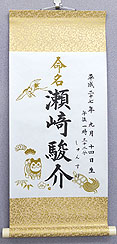 平成二十七年 九月 十四日 生
命名
瀬﨑駿介
しゅんすけ